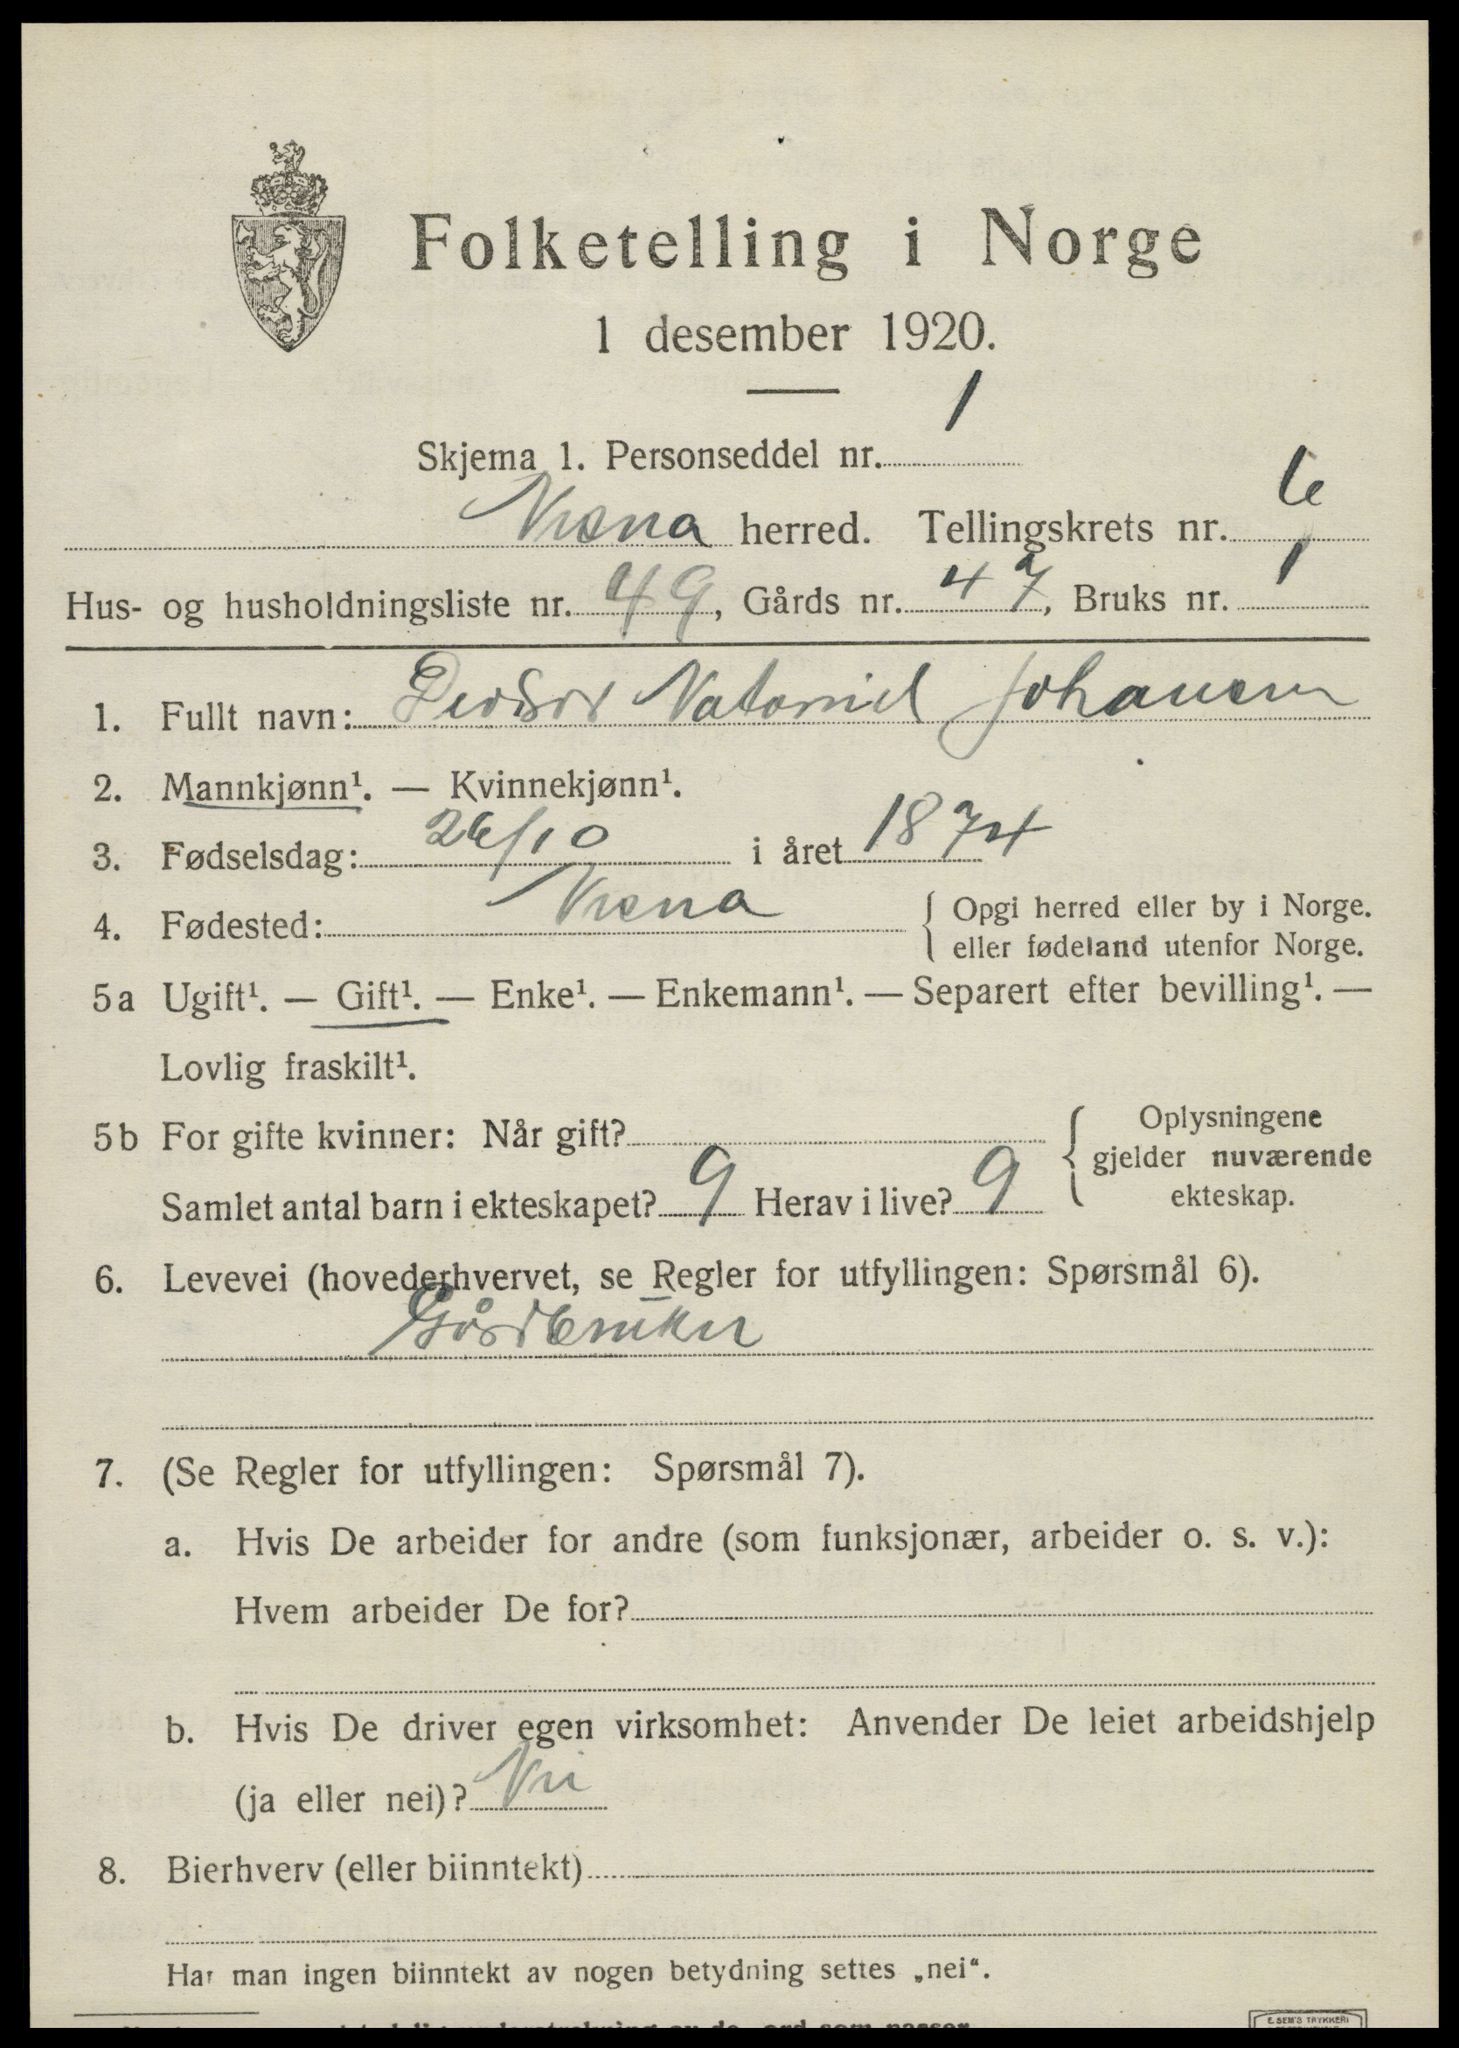 Folketelling i Norge
1 desember 1920.
Skjema 1. Personseddel nr. 1
Nesna herred. Tellingskrets nr. 6
Hus- og husholdningsliste nr. 49, Gårds nr. 47, Bruks nr. 1
1. Fullt navn: Nataniel Johansen
2. Mannkjønn¹. — Kvinnekjønn¹.
3. Fødselsdag: 26/10 i året 1874
4. Fødested: Nesna { Opgi herred eller by i Norge.
eller fødeland utenfor Norge.
5a Ugift¹. — Gift¹. — Enke¹. — Enkemann¹. — Separert efter bevilling¹. —
Lovlig fraskilt¹.
5b For gifte kvinner: Når gift? { Oplysningene
gjelder nuværende
ekteskap.
Samlet antal barn i ekteskapet? 9 Herav i live? 9
6. Levevei (hovederhvervet, se Regler for utfyllingen: Spørsmål 6).
Gårdbruker
7. (Se Regler for utfyllingen: Spørsmål 7).
a. Hvis De arbeider for andre (som funksjonær, arbeider o. s. v.):
Hvem arbeider De for?
b. Hvis De driver egen virksomhet: Anvender De leiet arbeidshjelp
(ja eller nei)? Nei
8. Bierhverv (eller biinntekt)
Har man ingen biinntekt av nogen betydning settes „nei“.
E. SEM'S TRYKKERI